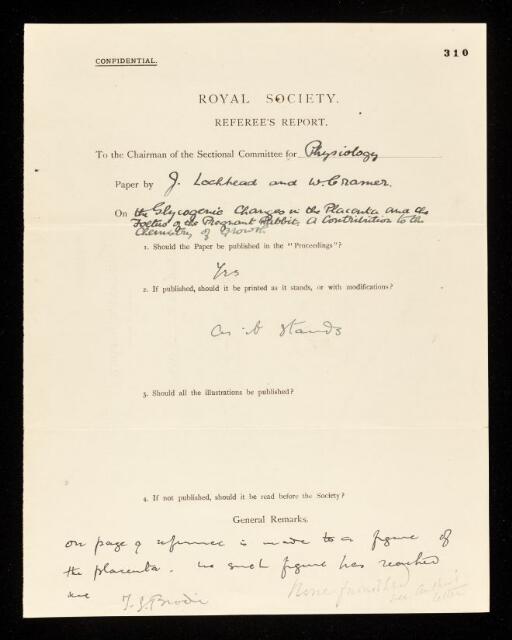 310
CONFIDENTIAL.
ROYAL SOCIETY.
REFEREE'S REPORT.
To the Chairman of the Sectional Committee for Physiology
Paper by J. Lochhead and W. Cramer.
On the Glycogenic Changes in the Placenta and the
Foetus of the Pregnant Rabbit. A Contribution to the
Chemistry of Growth.
1. Should the Paper be published in the "Proceedings"?
Yes
2. If published, should it be printed as it stands, or with modifications?
As it stands
3. Should all the illustrations be published?
4. If not published, should it be read before the Society?
General Remarks.
On page 9 reference is made to a figure of
the placenta. No such figure has reached
me
T. G. Brodie
None furnished
see author's
letter